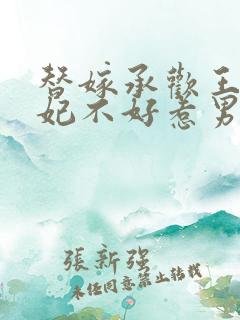 替嫁承歡王
妃不好惹男
張新強
未经同意禁止转载